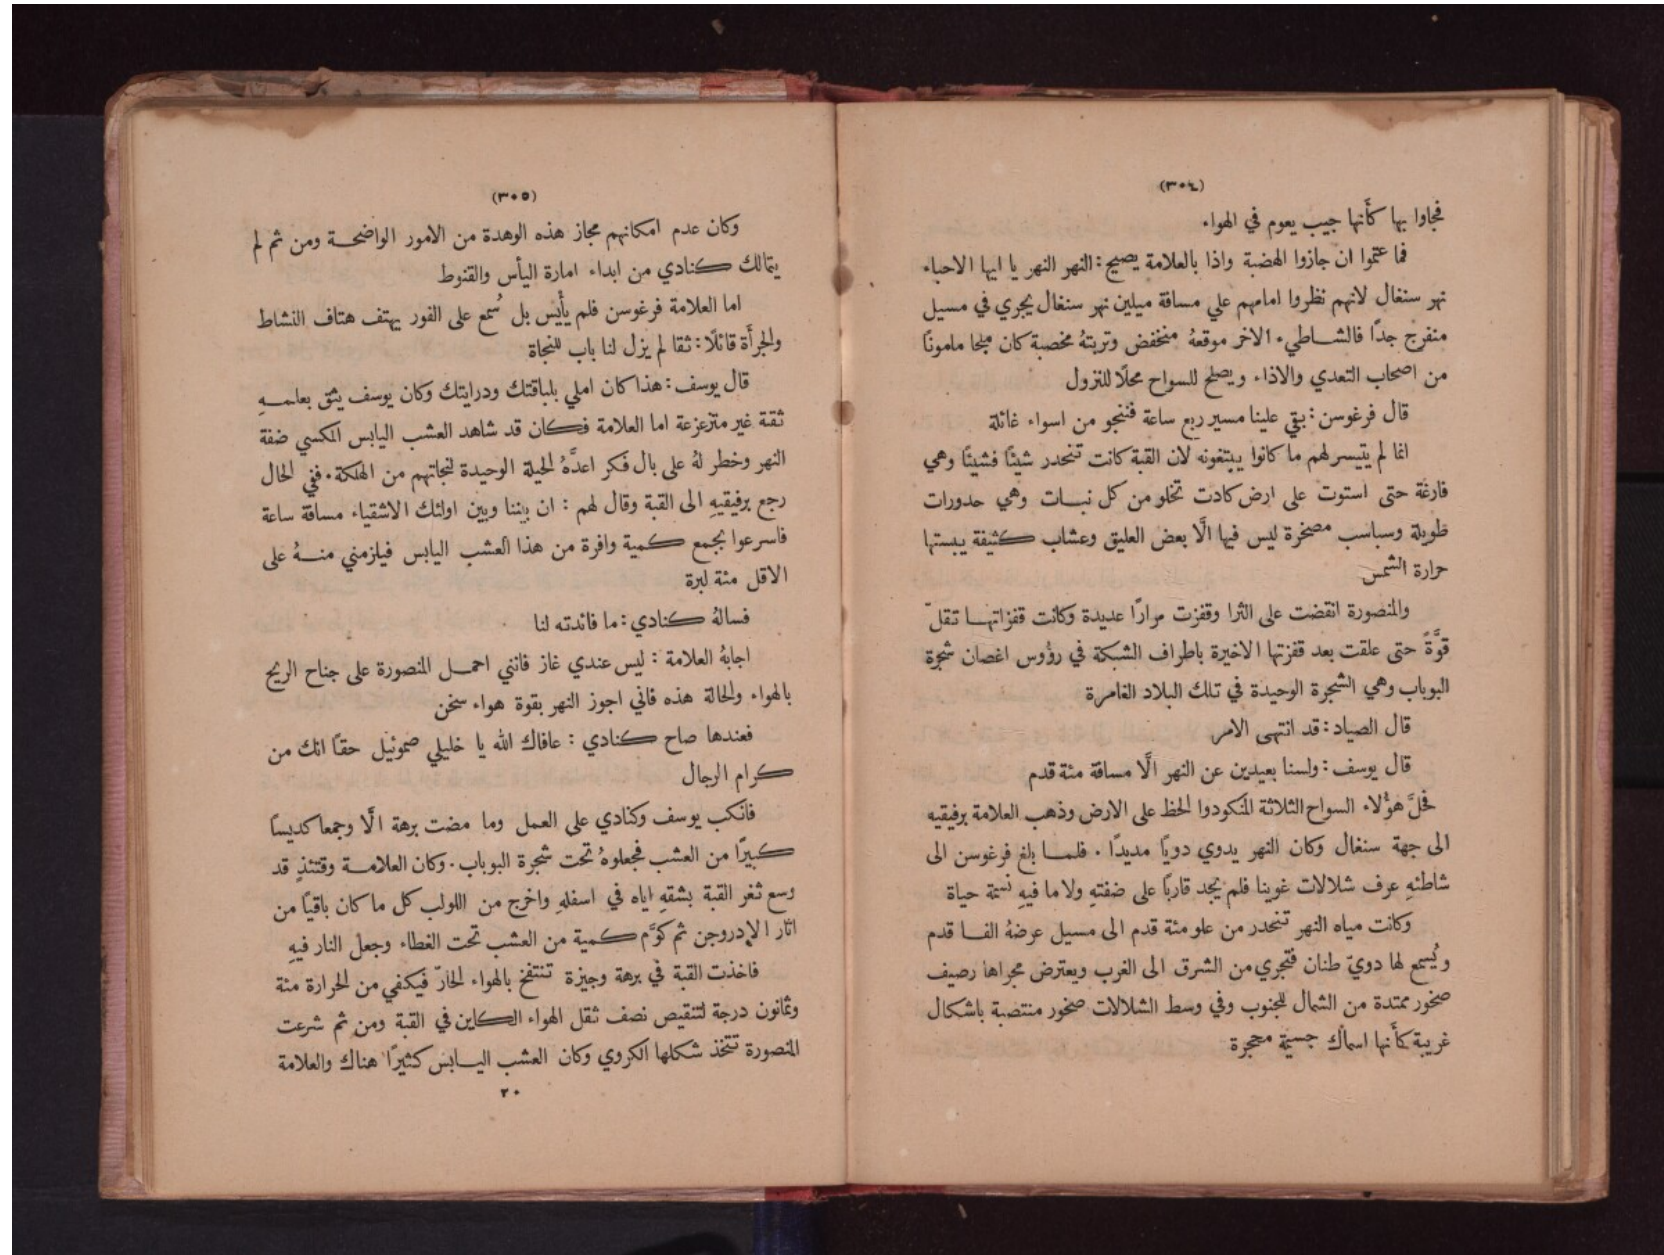 (٣٠٤)
فجاوا بها كأنها جيب يعوم في الهواء
فما عتموا ان جازوا الهضبة واذا بالعلامة يصيح: النهر النهر يا ايها الاحباء
نهر سنغال لانهم نظروا امامهم علي مسافة ميلين نهر سنغال يجري في مسيل
منفرج جدًا فالشاطيء الاخر موقعهُ منخفض وتربتهُ مخصبة كان ملجا مامونًا
من اصحاب التعدي والاذاء ويصلح للسواح محلًا للنزول
قال فرغوسن: بقي علينا مسير ربع ساعة فننجو من اسواء غائلة
انما لم يتيسر لهم ما كانوا يبتغونه لان القبة كانت تنحدر شيئًا فشيئًا وهي
فارغة حتى استوت على ارض كادت تخلو من كل نبات وهي حدورات
طويلة وسباسب مصخرة ليس فيها الَّا بعض العليق وعشاب كثيفة يبستها
حرارة الشمس
والمنصورة انقضت على الثرا وقفزت مرارًا عديدة وكانت قفزاتها تقلّ
قوَّةً حتى علقت بعد قفزتها الاخيرة باطراف الشبكة في رؤوس اغصان شجرة
البوباب وهي الشجرة الوحيدة في تلك البلاد الغامرة
قال الصياد: قد انتهى الامر
قال يوسف: ولسنا بعيدين عن النهر الَّا مسافة مئة قدم
فحلَّ هؤُلاء السواح الثلاثة المنكودوا الحظ على الارض وذهب العلامة برفيقيه
الى جهة سنغال وكان النهر يدوي دويًا مديدًا. فلما بلغ فرغوسن الى
شاطئهِ عرف شلالات غوينا فلم يجد قاربًا على ضفتهِ ولا ما فيهِ نسمة حياة
وكانت مياه النهر تنحدر من علو مئة قدم الى مسيل عرضهُ الفا قدم
ويُسمع لها دويّ طنان فتجري من الشرق الى الغرب ويعترض مجراها رصيف
صخور ممتدة من الشمال للجنوب وفي وسط الشلالات صخور منتصبة باشكال
غريبة كأنها اسماك جسيمة محجرة
(٣٠٥)
وكان عدم امكانهم مجاز هذه الوهدة من الامور الواضحة ومن ثم لم
يتمالك كنادي من ابداء امارة اليأس والقنوط
اما العلامة فرغوسن فلم يأيس بل سُمع على الفور يهتف هتاف النشاط
والجرأة قائلًا: ثقا لم يزل لنا باب للنجاة
قال يوسف: هذا كان املي بلباقتك ودرايتك وكان يوسف يثق بعلمهِ
ثقة غير متزعزعة اما العلامة فكان قد شاهد العشب اليابس المكسي ضفة
النهر وخطر لهُ على بال فكر اعدَّهُ الحيلة الوحيدة لنجاتهم من الهلكة. ففي الحال
رجع برفيقيهِ الى القبة وقال لهم: ان بيننا وبين اولئك الاشقياء مسافة ساعة
فاسرعوا بجمع كمية وافرة من هذا العشب اليابس فيلزمني منهُ على
الاقل مئة لبرة
فسالهُ كنادي: ما فائدته لنا
اجابهُ العلامة: ليس عندي غاز فانني احمل المنصورة على جناح الريح
بالهواء والحالة هذه فاني اجوز النهر بقوة هواء سخن
فعندها صاح كنادي: عافاك الله يا خليلي صموئيل حقًا انك من
كرام الرجال
فانكب يوسف وكنادي على العمل وما مضت برهة الَّا وجمعا كديسًا
كبيرًا من العشب فجعلوهُ تحت شجرة البوباب. وكان العلامة وقتئذٍ قد
وسع ثغر القبة بشقهِ اياه في اسفلهِ واخرج من اللولب كل ما كان باقيًا من
اثار الإدروجن ثم كوَّم كمية من العشب تحت الغطاء وجعل النار فيهِ
فاخذت القبة في برهة وجيزة تنتفخ بالهواء الحارّ فيكفي من الحرارة مئة
وثمانون درجة لتنقيص نصف ثقل الهواء الكاين في القبة ومن ثم شرعت
المنصورة تتخذ شكلها الكروي وكان العشب اليابس كثيرًا هناك والعلامة
٢٠